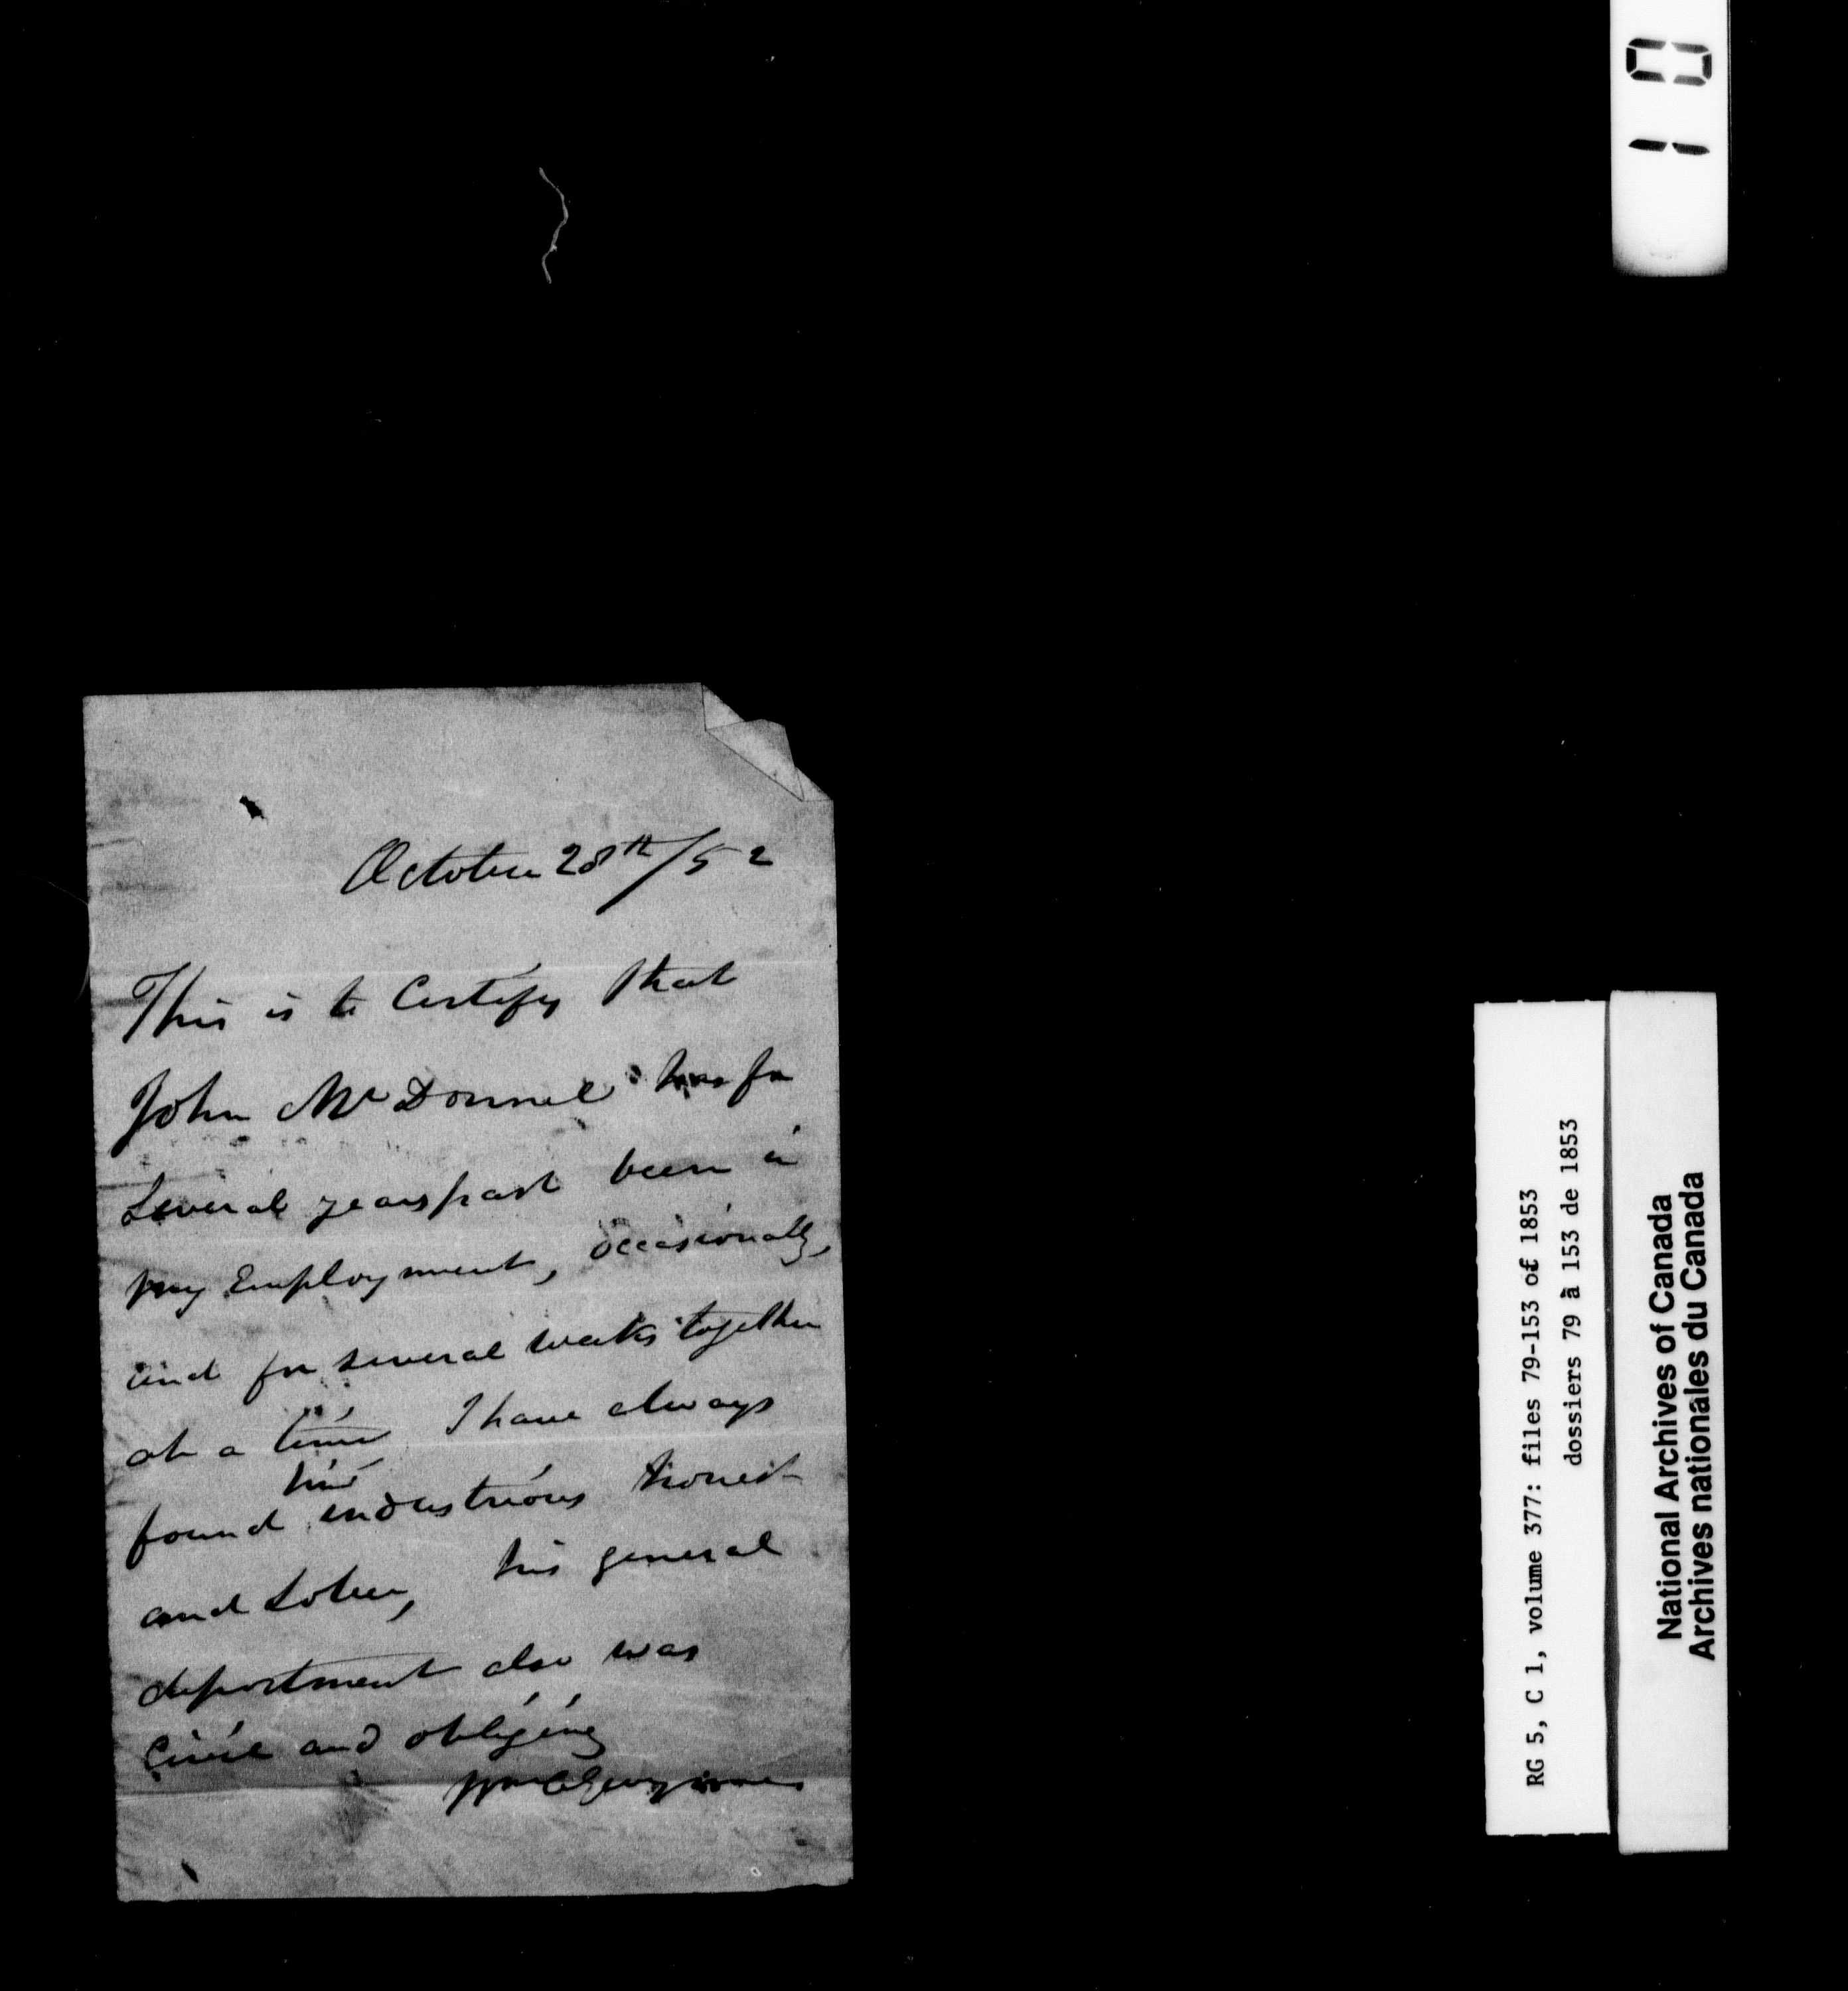 October 28th/52
This is to Certify that
John McDonnel has for
Several years past been in
my Employment, occasionally,
and for several weeks together
at a time I have always
him
found industrious honest
and Sober, his general
deportment also was
Civil and obliging
Wm C Gwynne
10
RG 5, C 1, volume 377: files 79-153 of 1853
dossiers 79 à 153 de 1853
National Archives of Canada
Archives nationales du Canada